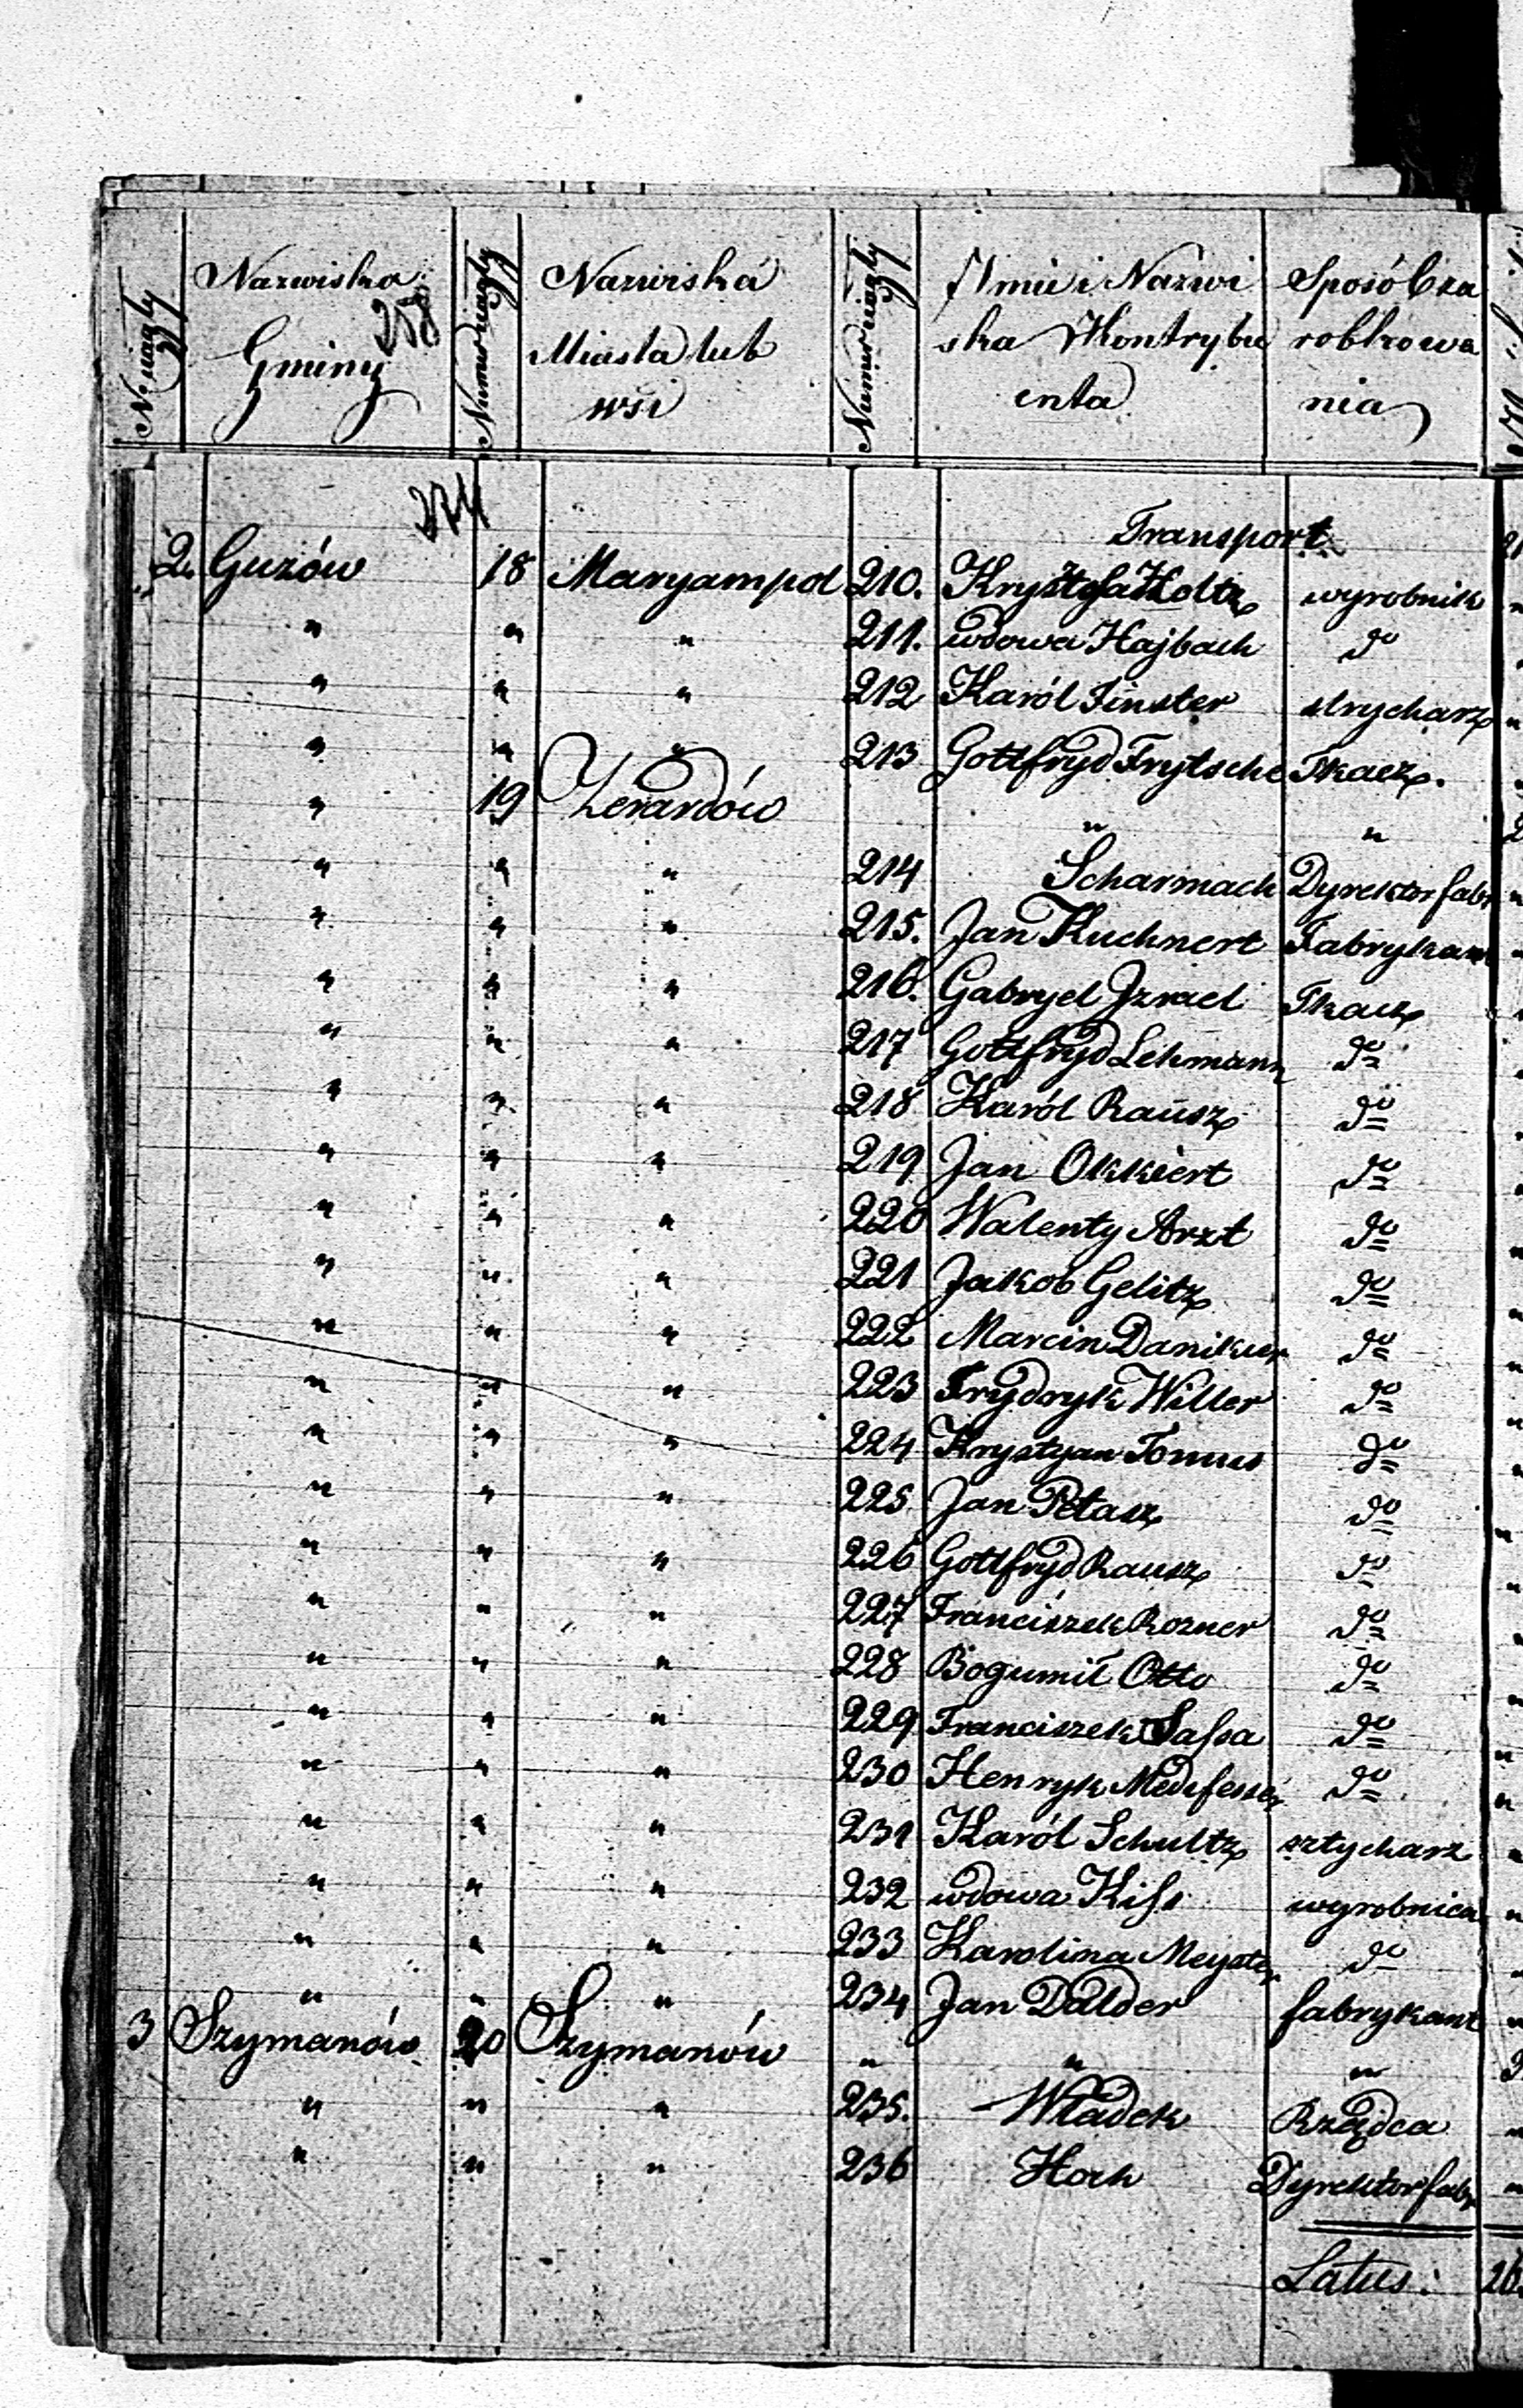 N. ciągły Nazwiska Gminy Numer ciągły Nazwiska Miasta lub wsi Numer ciągły Imie i Nazwiska Kontrybuenta Sposób zarobkowania
258
274
Transport
2. Guzów 18 Maryampol 210. Krysztofa Holtz wyrobnik
" " " 211. wdowa Hajbach do
" " " 212 Karól Finster strycharz
" " " 213 Gottfryd Frytsche Tkacz.
" 19 Zerardów " "
" " " 214 Scharmach Dyrektor fabr
" " " 215. Jan Kuchnert Fabrykant
" " " 216. Gabryel Izrael Tkacz
" " " 217 Gottfryd Lehmann do
" " " 218 Karól Rausz do
" " " 219 Jan Okkiert do
" " " 220 Walenty Arzt do
" " " 221 Jakob Gelitz do
" " " 222 Marcin Danikier do
" " " 223 Frydryk Willer do
" " " 224 Krystyan Tomus do
" " " 225. Jan Petasz do
" " " 226 Gottfryd Rausz do
" " " 227 Franciszek Rozner do
" " " 228 Bogumił Otto do
" " " 229 Franciszek Sassa do
" " " 230 Henryk do
" " " 231 Karól Schultz sztycharz
" " " 232 wdowa Kiss wyrobnica
" " " 233 Karolina Meyster do
" " " 234 Jan Dalder fabrykant
3 Szymanów 20 Szymanów " " "
" " " 235. Władek Rządca
" " " 236 Hoch Dyrektor fabr
Latus: